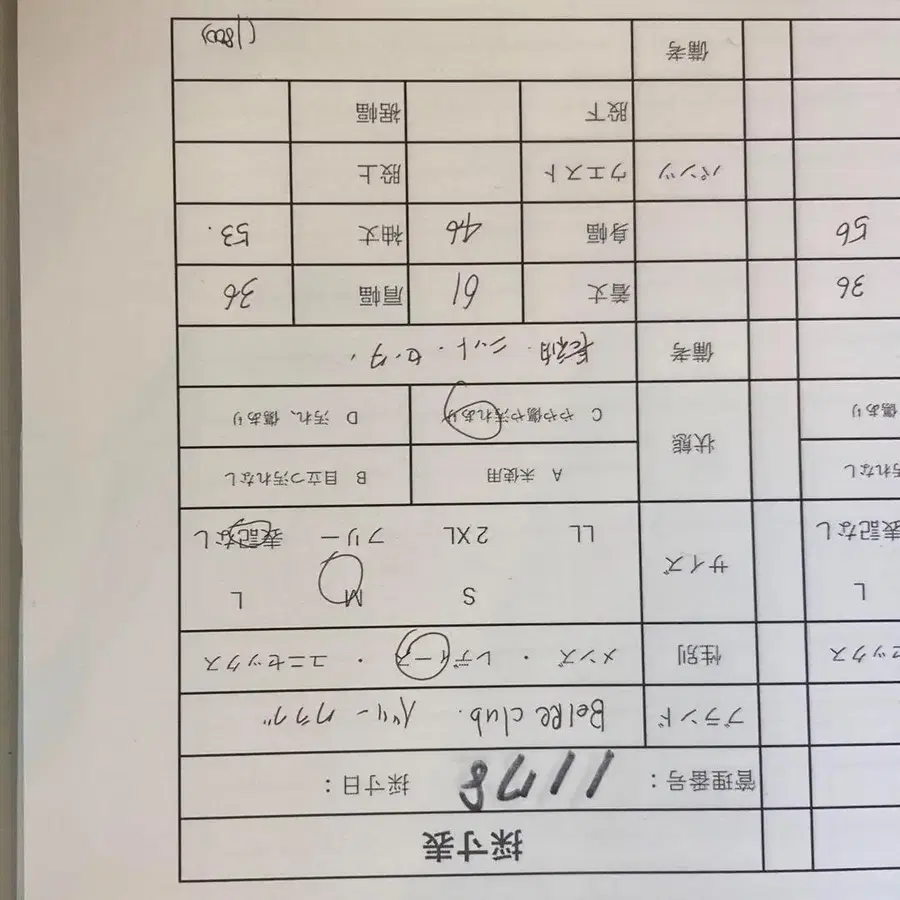 採寸表
管理番号: 1178 採寸日:
ブランド Belle club. バリークラブ
セックス 性別 メンズ ・ レディース ・ ユニセックス
L サイズ S M L
表記なし LL 2XL フリー 表記なし
汚れなし 状態 A 未使用 B 目立つ汚れなし
傷あり C やや傷や汚れあり D 汚れ、傷あり
備考 長袖. ニット・セータ
36 着丈 61 肩幅 36
56 身幅 46 袖丈 53.
パンツ ウエスト 股上
股下 裾幅
備考 (1,800)